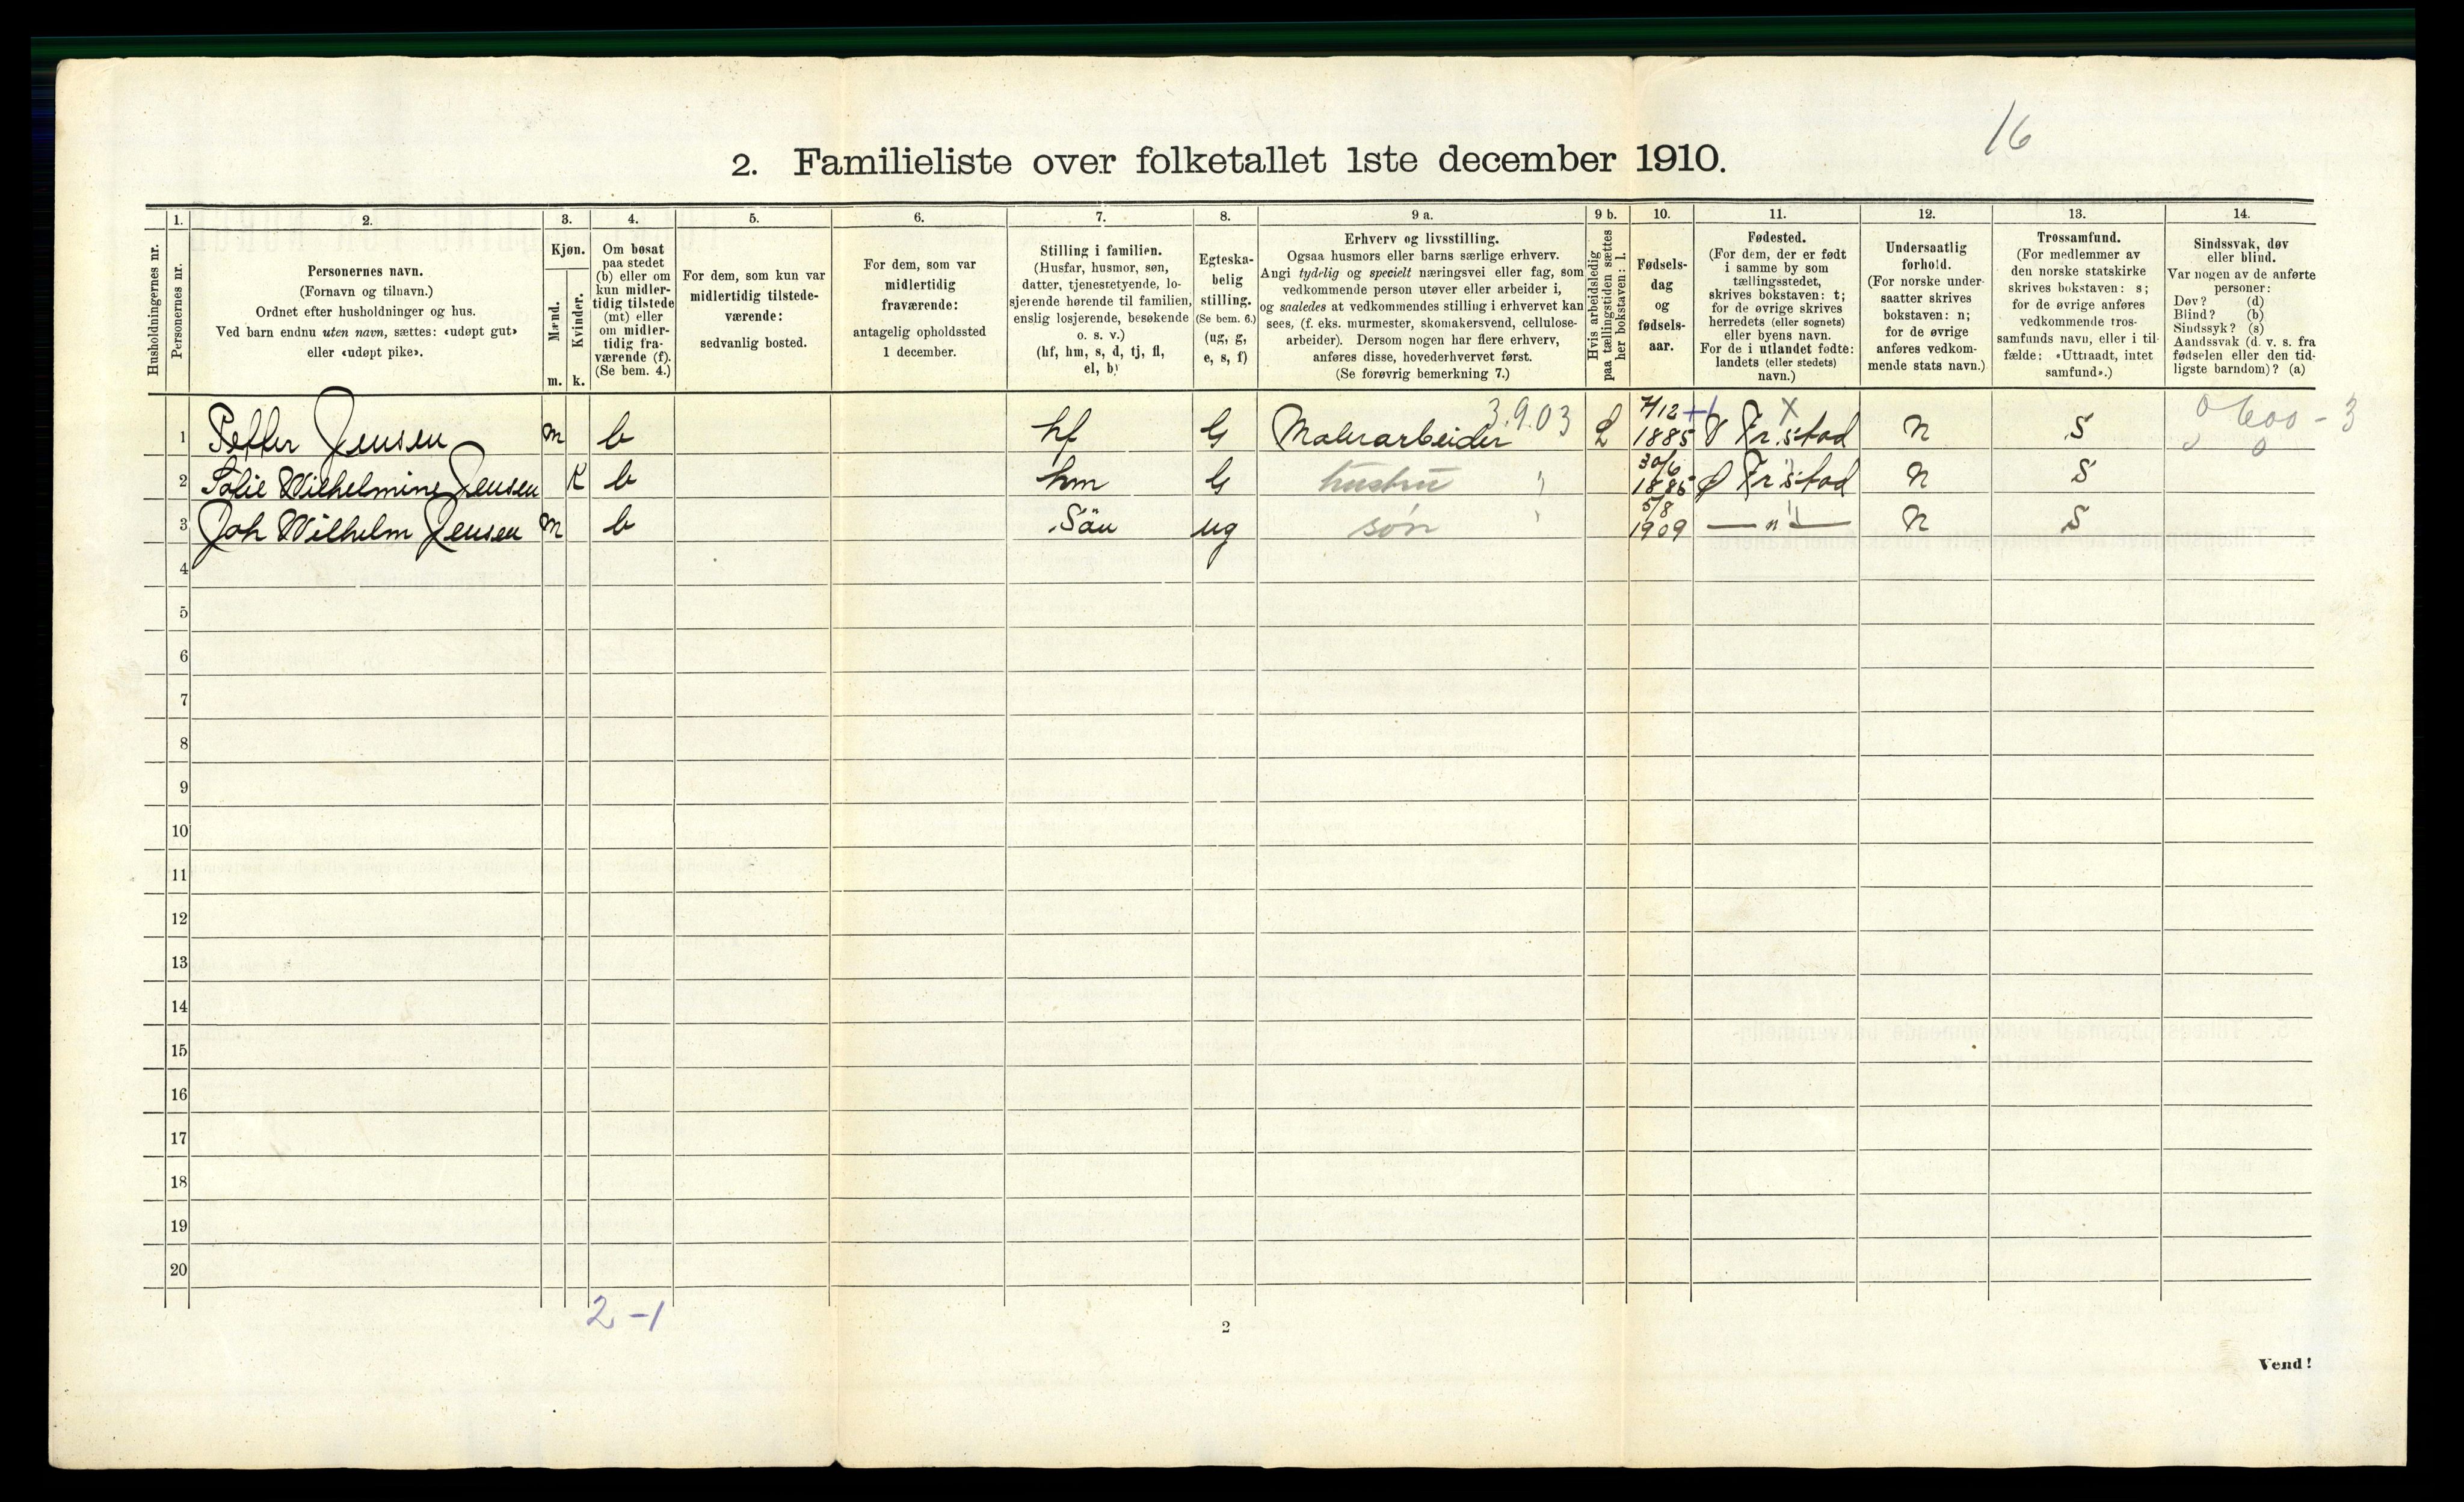 16
2. Familieliste over folketallet 1ste december 1910.
1. 2. 3. 4. 5. 6. 7. 8. 9 a. 9 b. 10. 11. 12. 13. 14.
Husholdningernes nr.
Personernes nr.
Personernes navn.
(Fornavn og tilnavn.)
Ordnet efter husholdninger og hus.
Ved barn endnu uten navn, sættes: «udøpt gut»
eller «udøpt pike».
Kjøn.
Mænd.
Kvinder.
m. k.
Om bosat
paa stedet
(b) eller om
kun midler-
tidig tilstede
(mt) eller
om midler-
tidig fra-
værende (f).
(Se bem. 4.)
For dem, som kun var
midlertidig tilstede-
værende:
sedvanlig bosted.
For dem, som var
midlertidig
fraværende:
antagelig opholdssted
1 december.
Stilling i familien.
(Husfar, husmor, søn,
datter, tjenestetyende, lo-
sjerende hørende til familien,
enslig losjerende, besøkende
o. s. v.)
(hf, hm, s, d, tj, fl,
el, b)
Egteska-
belig
stilling.
(Se bem. 6.)
(ug, g,
e, s, f)
Erhverv og livsstilling.
Ogsaa husmors eller barns særlige erhverv.
Angi tydelig og specielt næringsvei eller fag, som
vedkommende person utøver eller arbeider i,
og saaledes at vedkommendes stilling i erhvervet kan
sees, (f. eks. murmester, skomakersvend, cellulose-
arbeider). Dersom nogen har flere erhverv,
anføres disse, hovederhvervet først.
(Se forøvrig bemerkning 7.)
Hvis arbeidsledig
paa tællingstiden sættes
her bokstaven: l.
Fødsels-
dag
og
fødsels-
aar.
Fødested.
(For dem, der er født
i samme by som
tællingsstedet,
skrives bokstaven: t;
for de øvrige skrives
herredets (eller sognets)
eller byens navn.
For de i utlandet fødte:
landets (eller stedets)
navn.)
Undersaatlig
forhold.
(For norske under-
saatter skrives
bokstaven: n;
for de øvrige
anføres vedkom-
mende stats navn.)
Trossamfund.
(For medlemmer av
den norske statskirke
skrives bokstaven: s;
for de øvrige anføres
vedkommende tros-
samfunds navn, eller i til-
fælde: «Uttraadt, intet
samfund».)
Sindssvak, døv
eller blind.
Var nogen av de anførte
personer:
Døv? (d)
Blind? (b)
Sindssyk? (s)
Aandssvak (d. v. s. fra
fødselen eller den tid-
ligste barndom)? (a)
3.9.03 7/12 +1 X 0 600 - 3
1 Petter Jensen m b hf G Malerarbeider L 1885 V Fr.stad N S 0 0
30/6
2 Sofie Wilhelmine Jensen K b hm G hustru " 1885 Ø Fr.stad N S
5/8
3 Joh Wilhelm Jensen m b Sön ug søn " 1909 — " — N S
4
5
6
7
8
9
10
11
12
13
14
15
16
17
18
19
20
2 - 1
2
Vend!